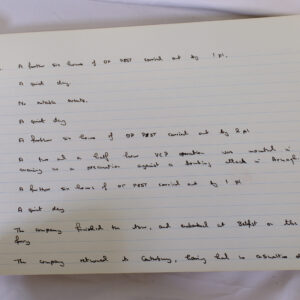 A further six hours of OP PEST carried out by 1 pl.
A quiet day.
No notable events.
A quiet day
A further six hours of OP PEST carried out by 2 pl
A two and a half hour VCP operation was mounted in
evening as a precaution against a bombing attack in Armagh.
A further six hours of OP PEST carried out by 1 pl
A quiet day
The company finished the tour, and embarked at Belfast on the
ferry
The company returned to Canterbury, having had no casualties